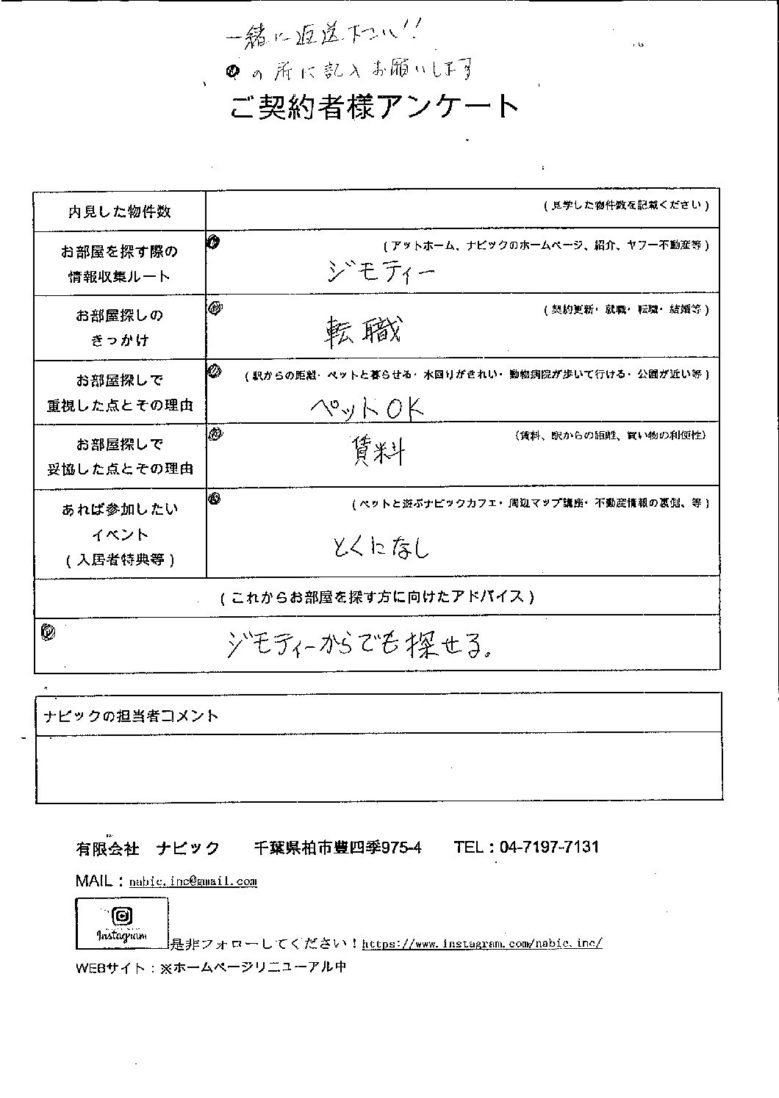 一緒に返送下さい!!
●の所に記入お願いします
ご契約者様アンケート
内見した物件数
(見学した物件数を記載ください)
お部屋を探す際の
情報収集ルート
(アットホーム、ナビックのホームページ、紹介、ヤフー不動産等)
ジモティー
お部屋探しの
きっかけ
(契約更新・就職・転職・結婚等)
転職
お部屋探しで
重視した点とその理由
(駅からの距離・ペットと暮らせる・水回りがきれい・動物病院が歩いて行ける・公園が近い等)
ペットOK
お部屋探しで
妥協した点とその理由
(賃料、駅からの距離、買い物の利便性)
賃料
あれば参加したい
イベント
(入居者特典等)
(ペットと遊ぶナビックカフェ・周辺マップ講座・不動産情報の裏側、等)
とくになし
(これからお部屋を探す方に向けたアドバイス)
ジモティーからでも探せる。
ナビックの担当者コメント
有限会社 ナビック 千葉県柏市豊四季975-4 TEL:04-7197-7131
MAIL:nabic.inc@gmail.com
Instagram
是非フォローしてください!https://www.instagram.com/nabic.inc/
WEBサイト:※ホームページリニューアル中